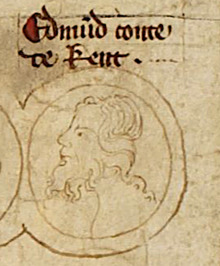 Edmūd conte
de Kent.